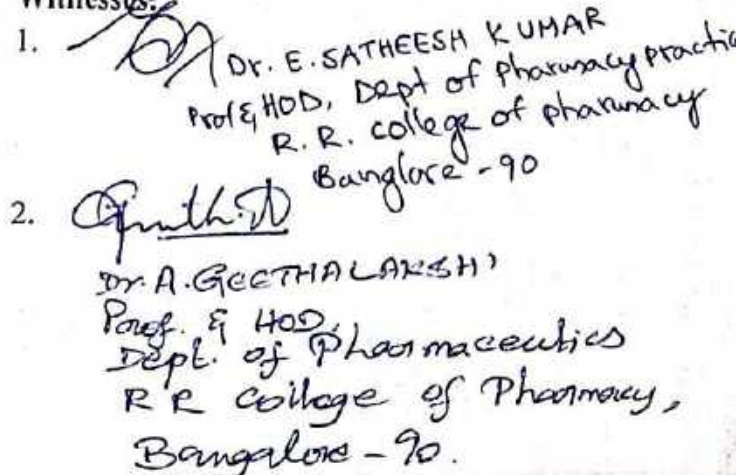 Witnesses:
1.
Dr. E. SATHEESH KUMAR
Prof & HOD, Dept of Pharmacy practic
R. R. college of pharmacy
Banglore - 90
2.
Dr. A. GEETHALAKSHI
Prof. & HOD,
Dept. of Pharmaceutics
R R College of Pharmacy,
Bangalore - 90.